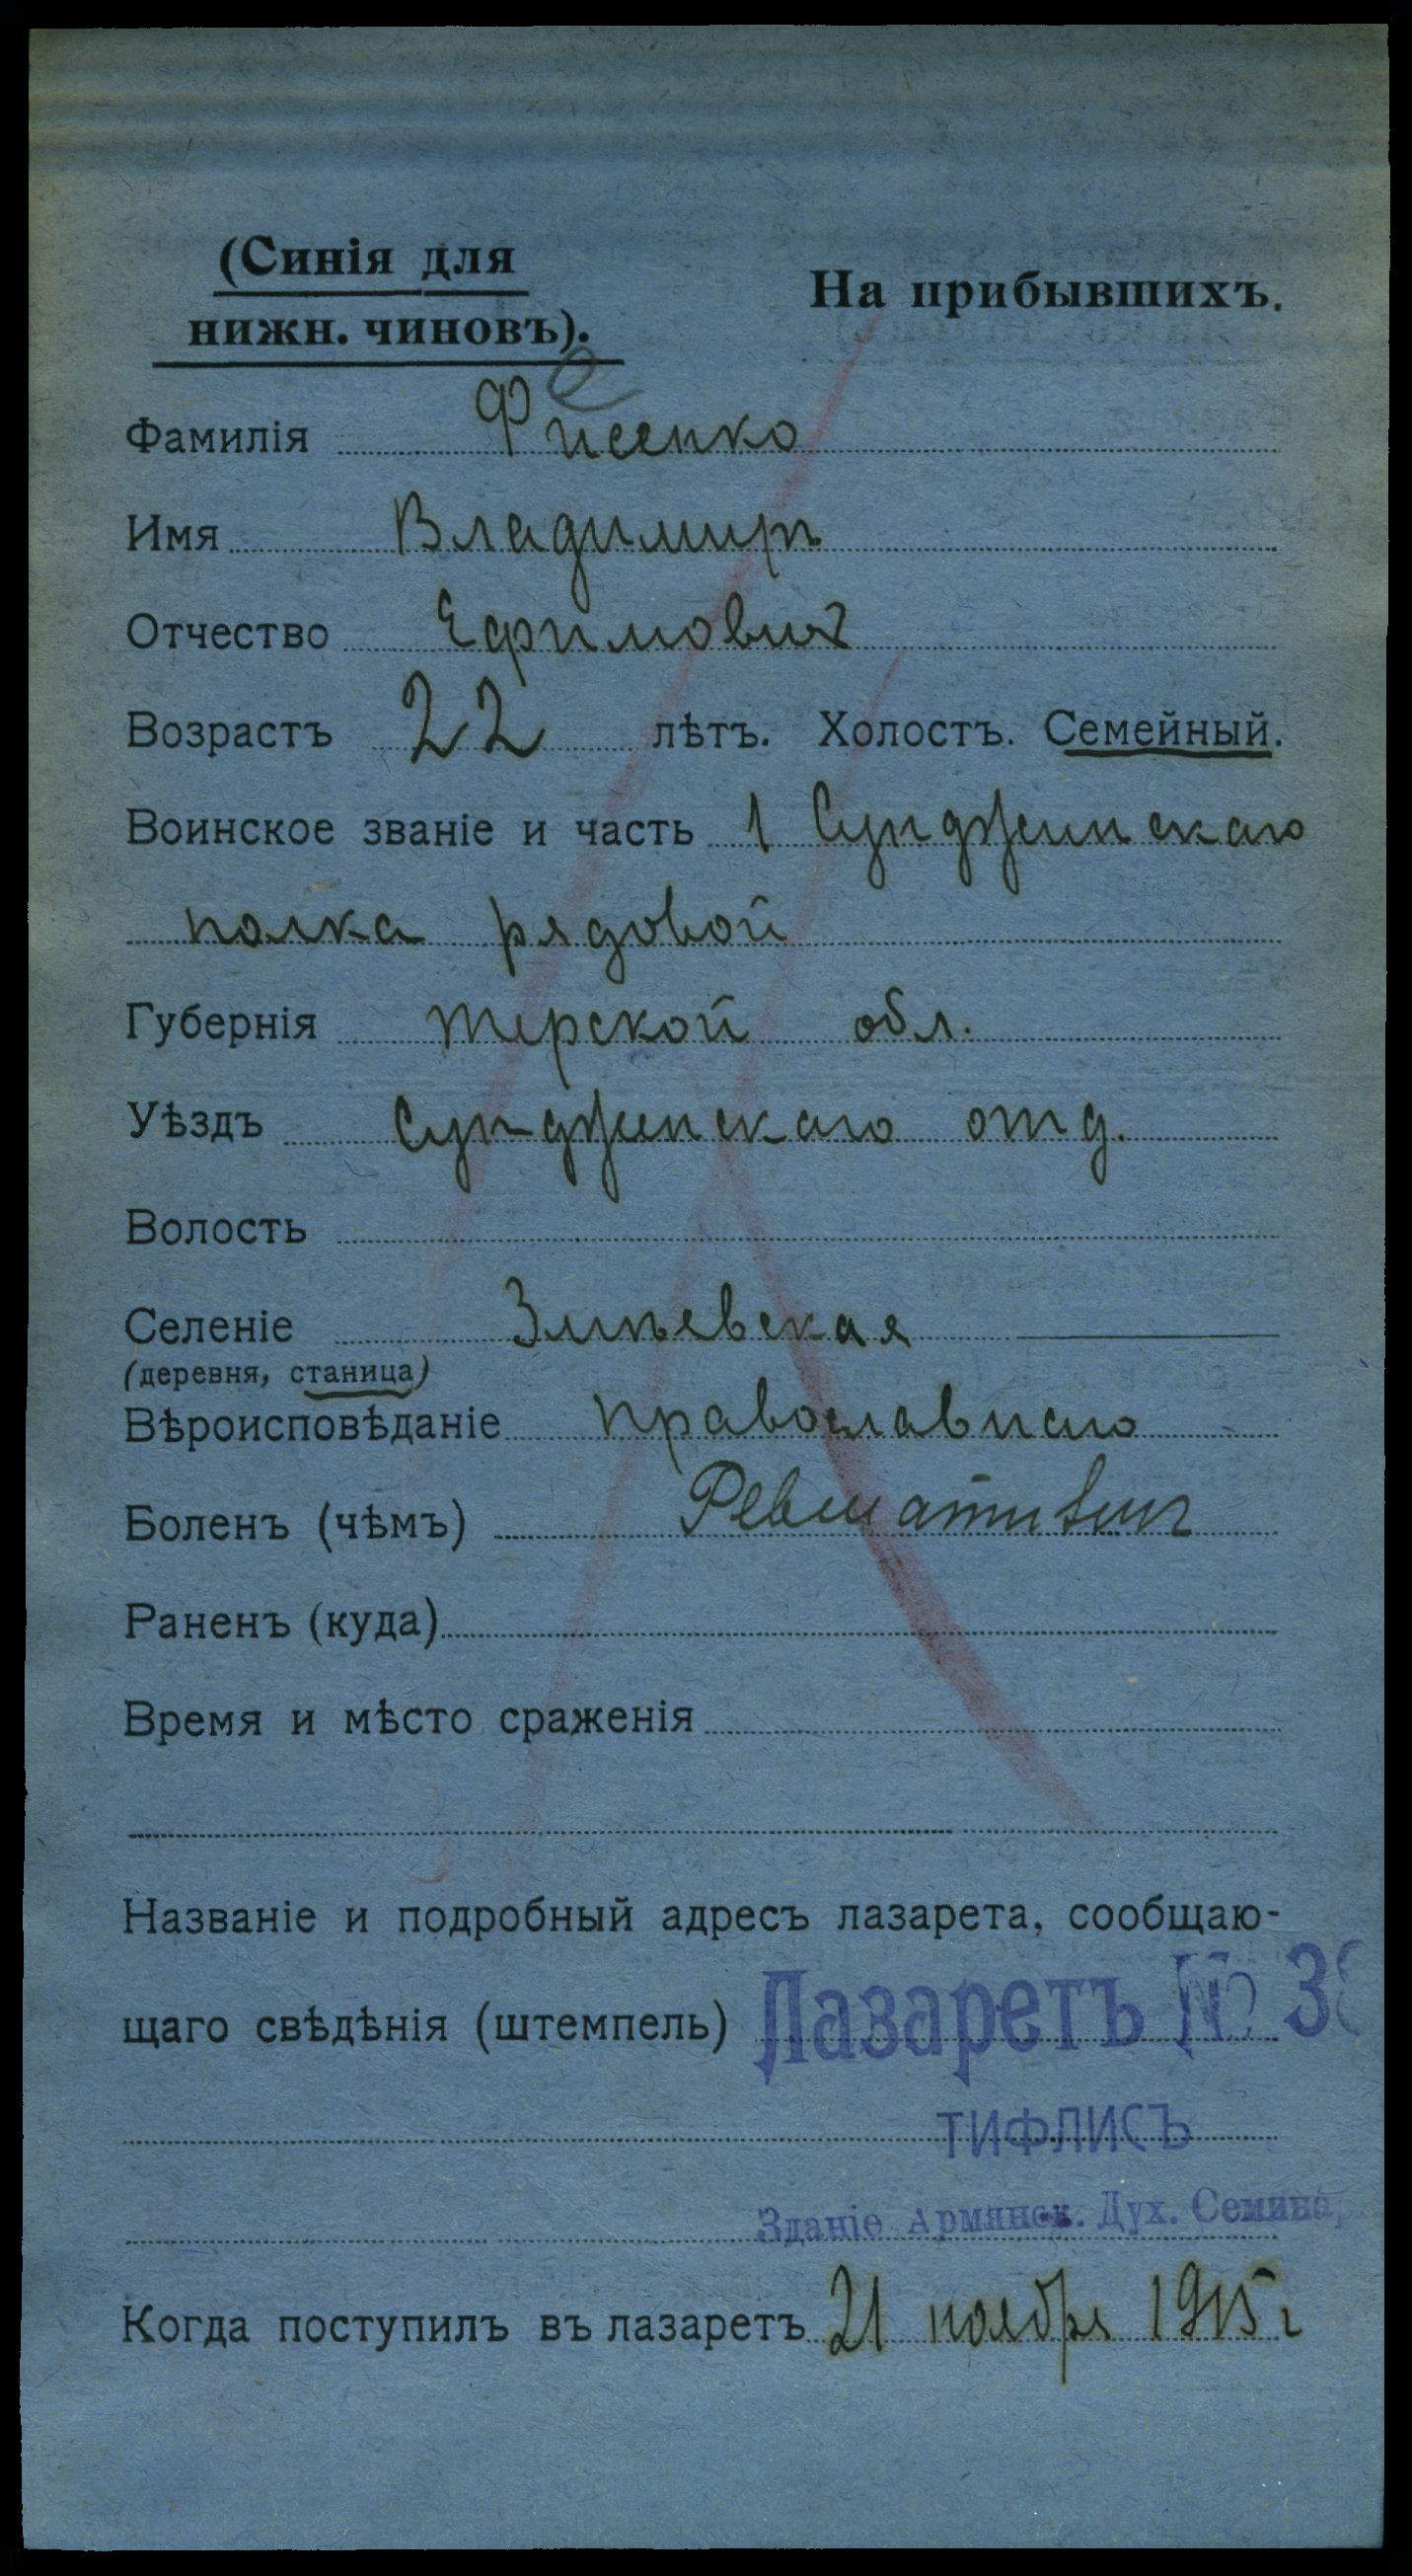 (Синія для
нижн. чиновъ).
На прибывшихъ.
Фамилія Фисенко
Имя Владимиръ
Отчество Ефимович
Возрастъ 22 лѣтъ. Холостъ. Семейный.
Воинское званіе и часть 1 Сунджинскаго
полка рядовой
Губернія Терской обл.
Уѣздъ Сунджинскаго отд.
Волость
Селеніе
(деревня, станица)
Вѣроисповѣданіе православнаго
Боленъ (чѣмъ) Ревматизм
Раненъ (куда)
Время и мѣсто сраженія
Названіе и подробный адресъ лазарета, сообщаю-
щаго свѣдѣнія (штемпель) Лазаретъ №
ТИФЛИСЪ
Зданіе Армянск. Дух. Семина
Когда поступилъ въ лазаретъ 21 ноября 1915 г